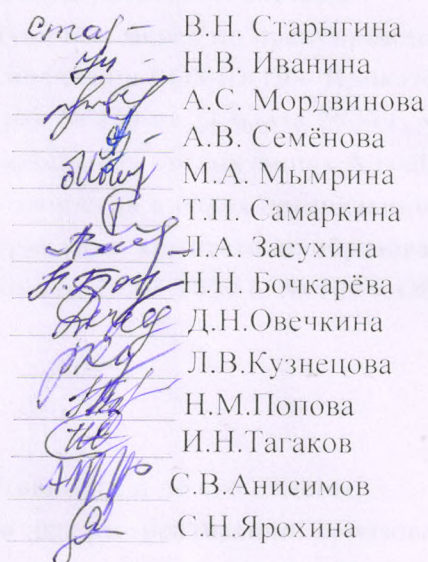 В.Н. Старыгина
Н.В. Иванина
А.С. Мордвинова
А.В. Семёнова
М.А. Мымрина
Т.П. Самаркина
Л.А. Засухина
Н.Н. Бочкарёва
Д.Н.Овечкина
Л.В.Кузнецова
Н.М.Попова
И.Н.Тагаков
С.В.Анисимов
С.Н.Ярохина